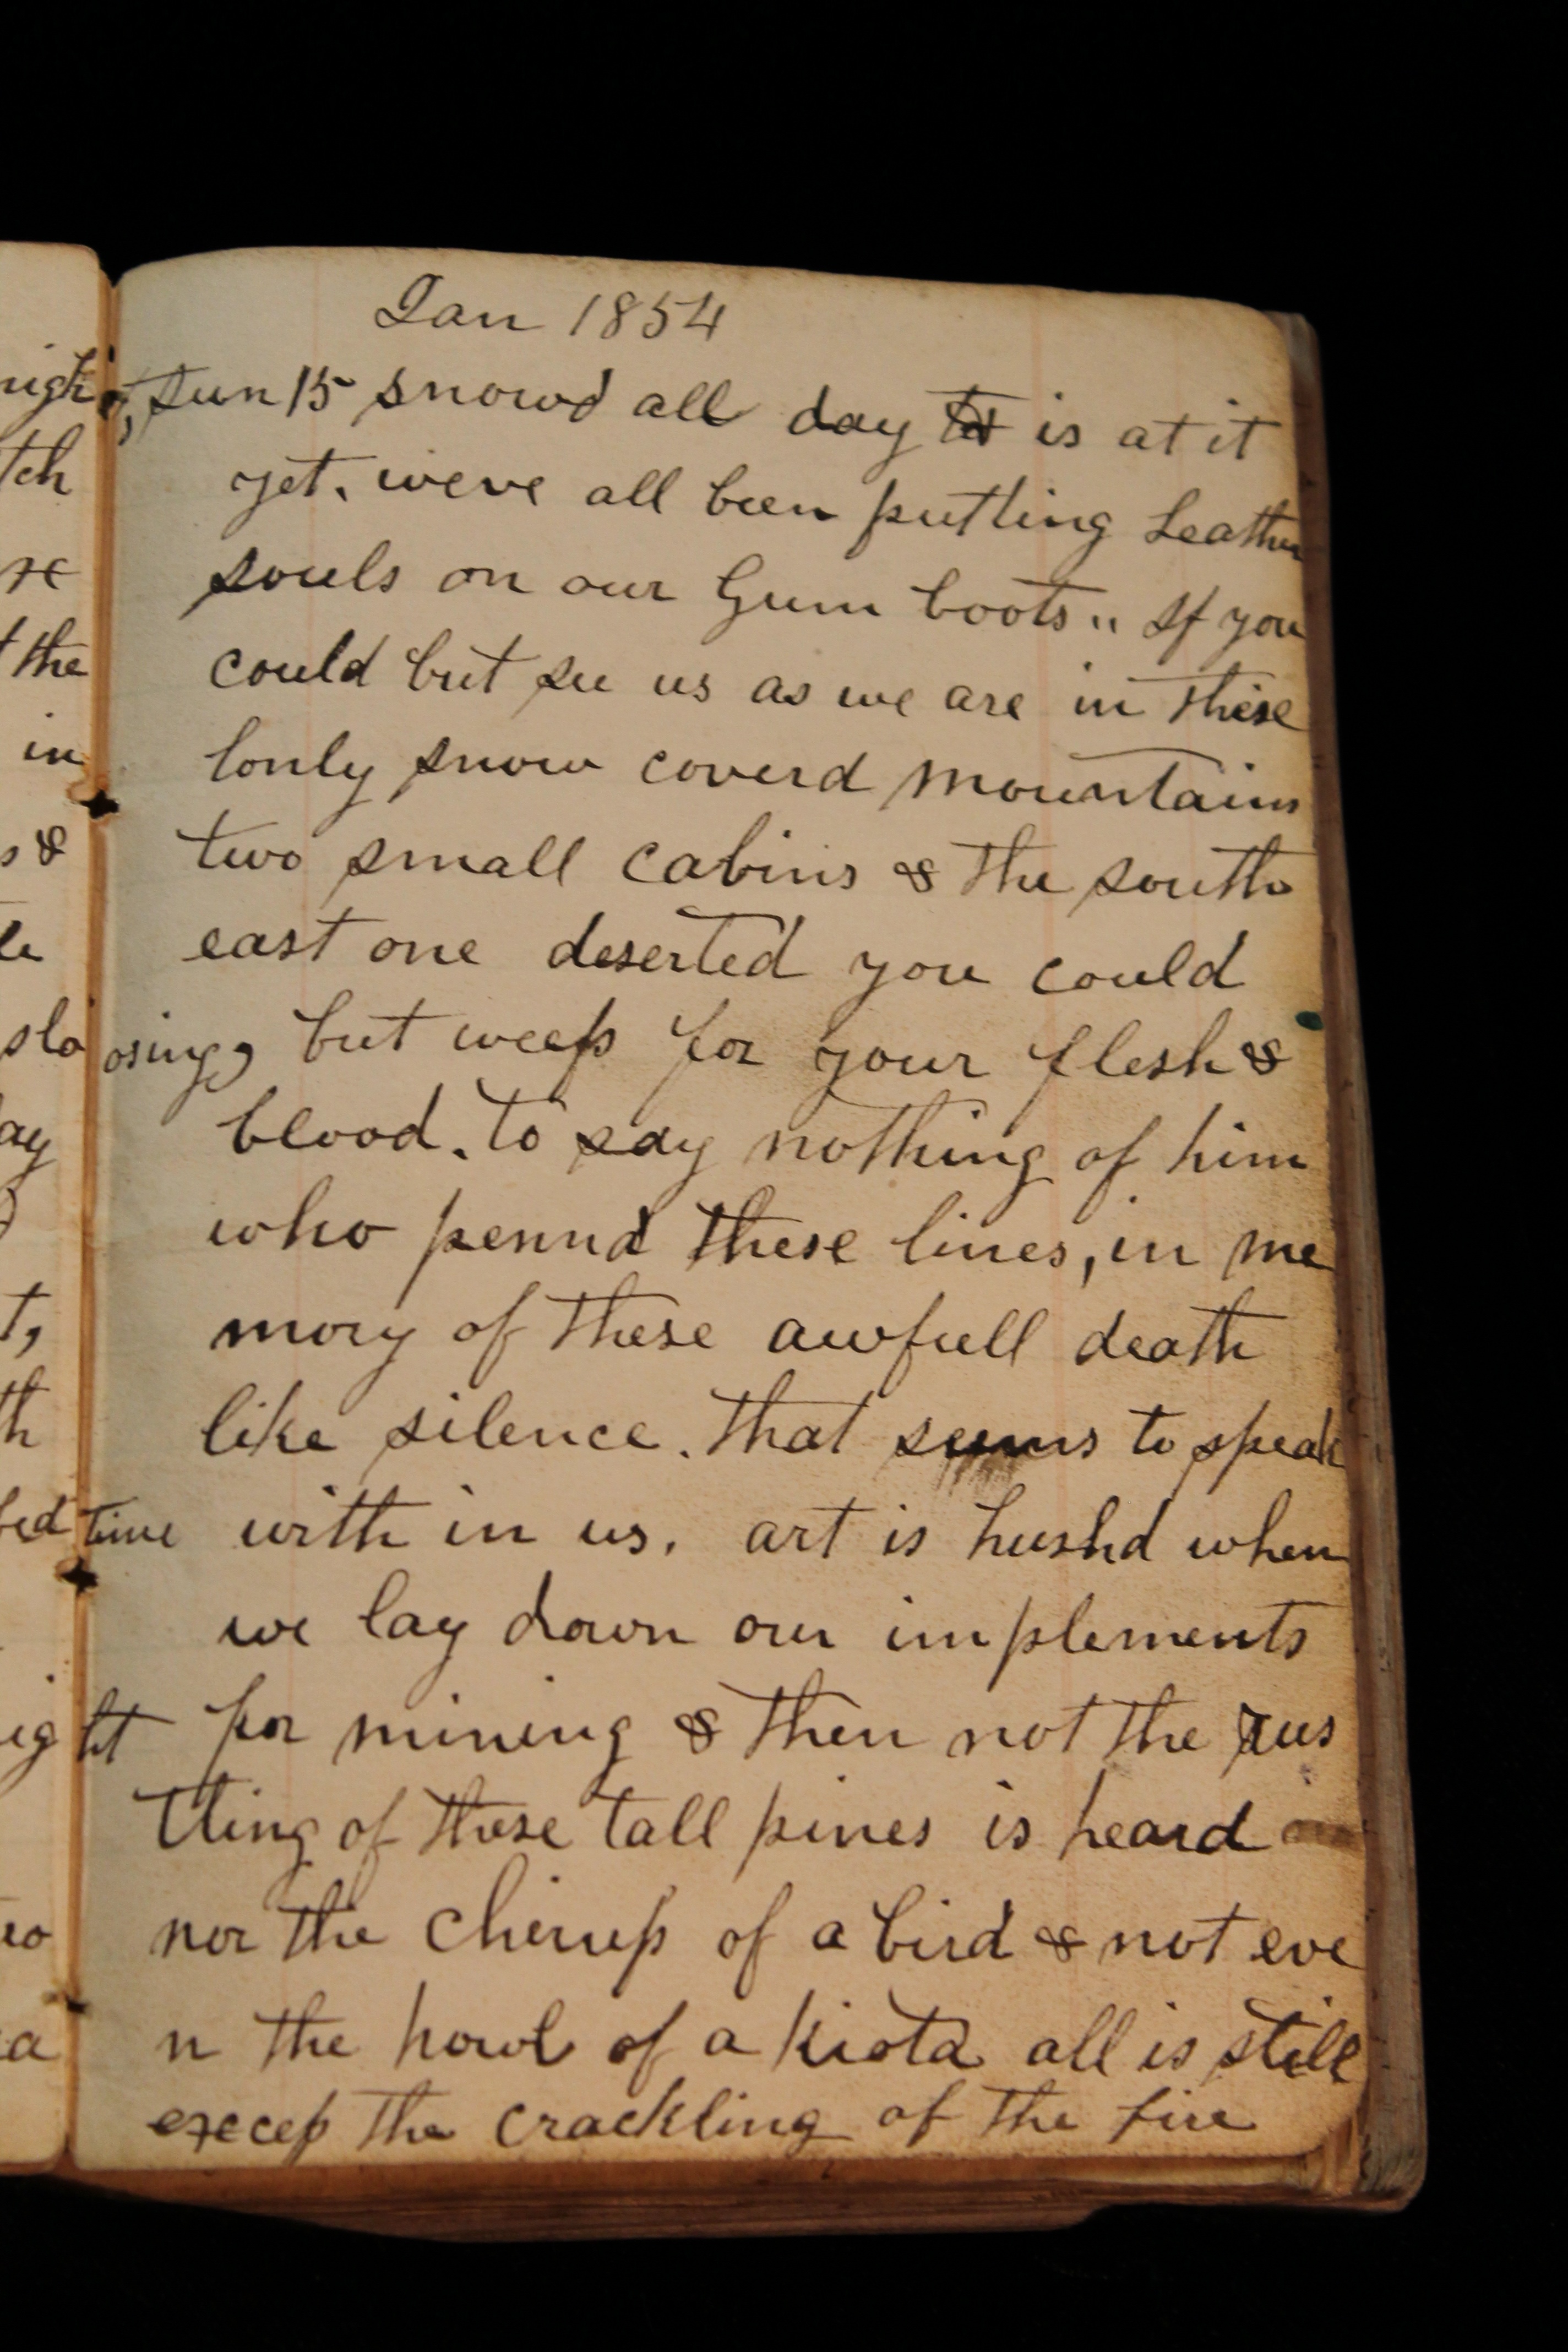 Jan 1854
Sun 15 snowd all day & is at it
yet. weve all been putting Leather
souls on our Gum boots " If you
could but see us as we are in these
lonly snow coverd mountains
two small cabins & the south
east one deserted you could
but weep for your flesh &
blood. to say nothing of him
who pennd these lines, in me
mory of these awfull death
like silence. that seems to speak
with in us. art is hushd when
we lay down our implements
for mining & then not the rus
tling of these tall pines is heard
nor the chirrup of a bird & not eve
n the howl of a kiota all is still
excep the crackling of the fire